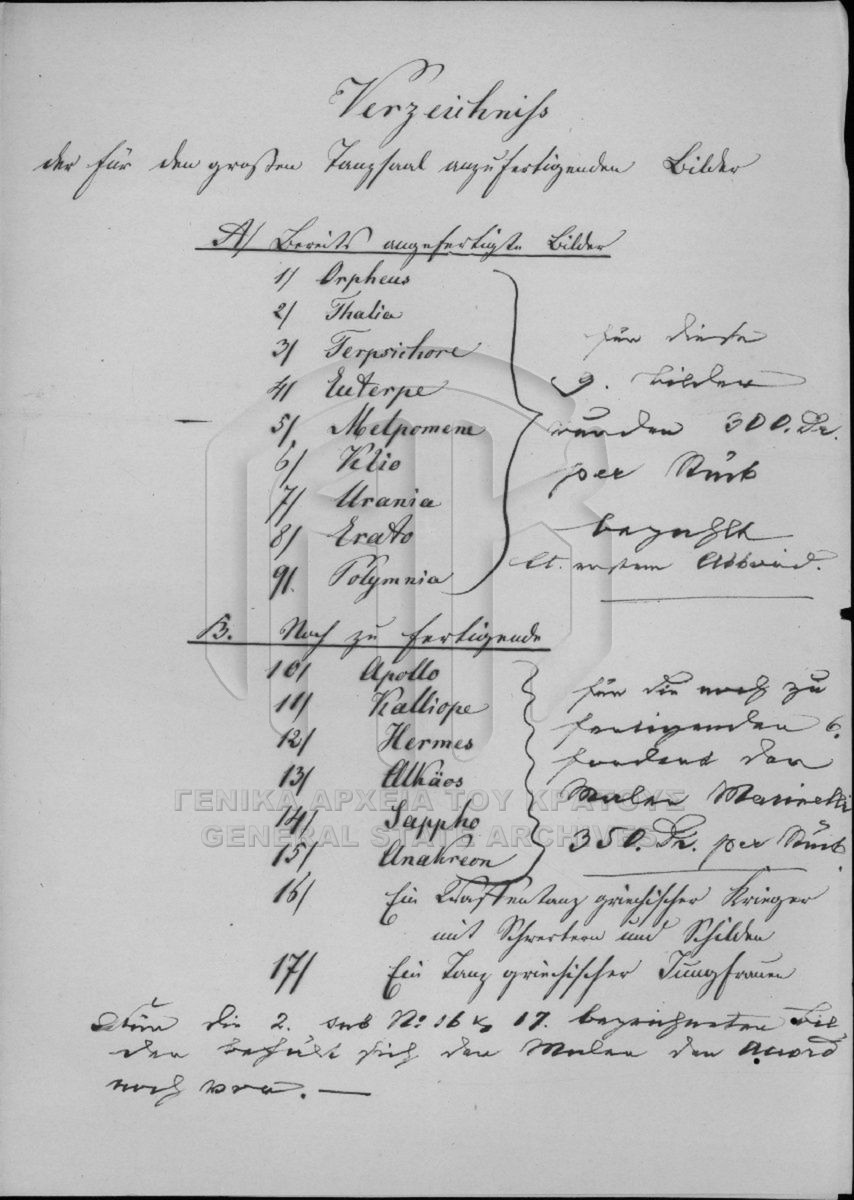 Verzeichniss
der für den großen Tanzsaal anzufertigenden Bilder
A/ Bereits angefertigte Bilder
1/ Orpheus
2/ Thalia
3/ Terpsichore
4/ Euterpe
5/ Melpomene
6/ Klio
7/ Urania
8/ Erato
9/. Polymnia
für diese
9. Bilder
wurden 300. Dr.
per Stück
bezahlt
lt. erstem Accord.
B. Noch zu fertigende
10/ Apollo
11/ Kalliope
12/ Hermes
13/ Alkäos
14/ Sappho
15/ Anakreon
für die noch zu
fertigenden 6.
fordert der
Maler
350. Dr. per Stück
16/ Ein Waffentanz griechischer Krieger
mit Schwertern und Schilden
17/ Ein Tanz griechischer Jungfrauen
Für die 2. sub No. 16 & 17. bezeichneten Bil
der behält sich der Maler den Accord
noch vor. —
ΓΕΝΙΚΑ ΑΡΧΕΙΑ ΤΟΥ ΚΡΑΤΟΥΣ
GENERAL STATE ARCHIVES